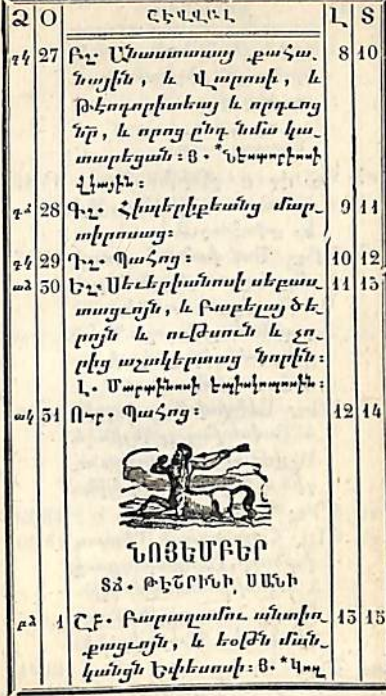 Ձ Օ ՇԷՎՎԱԼ Լ Տ
դկ 27 Բշ. Անաստասայ քահա֊ 8 10
նային, և Վարոսի, և
Թէոդորիտեայ և որդւոց
նր, և որոց ընդ նմա կա֊
տարեցան : Յ . *Նէստորիոսի
Վկային :
դձ 28 Գշ. Հիպերիքեանց մար֊ 9 11
տիրոսաց :
գկ 29 Դշ. Պահոց : 10 12
աձ 30 Եշ. Սեւերիանոսի սեբաս֊ 11 13
տացւոյն, և Բաբելայ ծե֊
րոյն և ութսուն և չո֊
րից աշակերտաց նորին :
Լ . Մարպինոսի Եպիսկոպոսին :
ակ 31 Ուր . Պահոց : 12 14
ՆՈՅԵՄԲԵՐ
ՏՃ . ԹԷՇՐԻՆԻ ՍԱՆԻ
բձ 1 Շբ . Բարաղամու անտիո֊ 13 15
քացւոյն, և եօթն ման֊
կանցն Եփեսոսի : Յ . *Կող